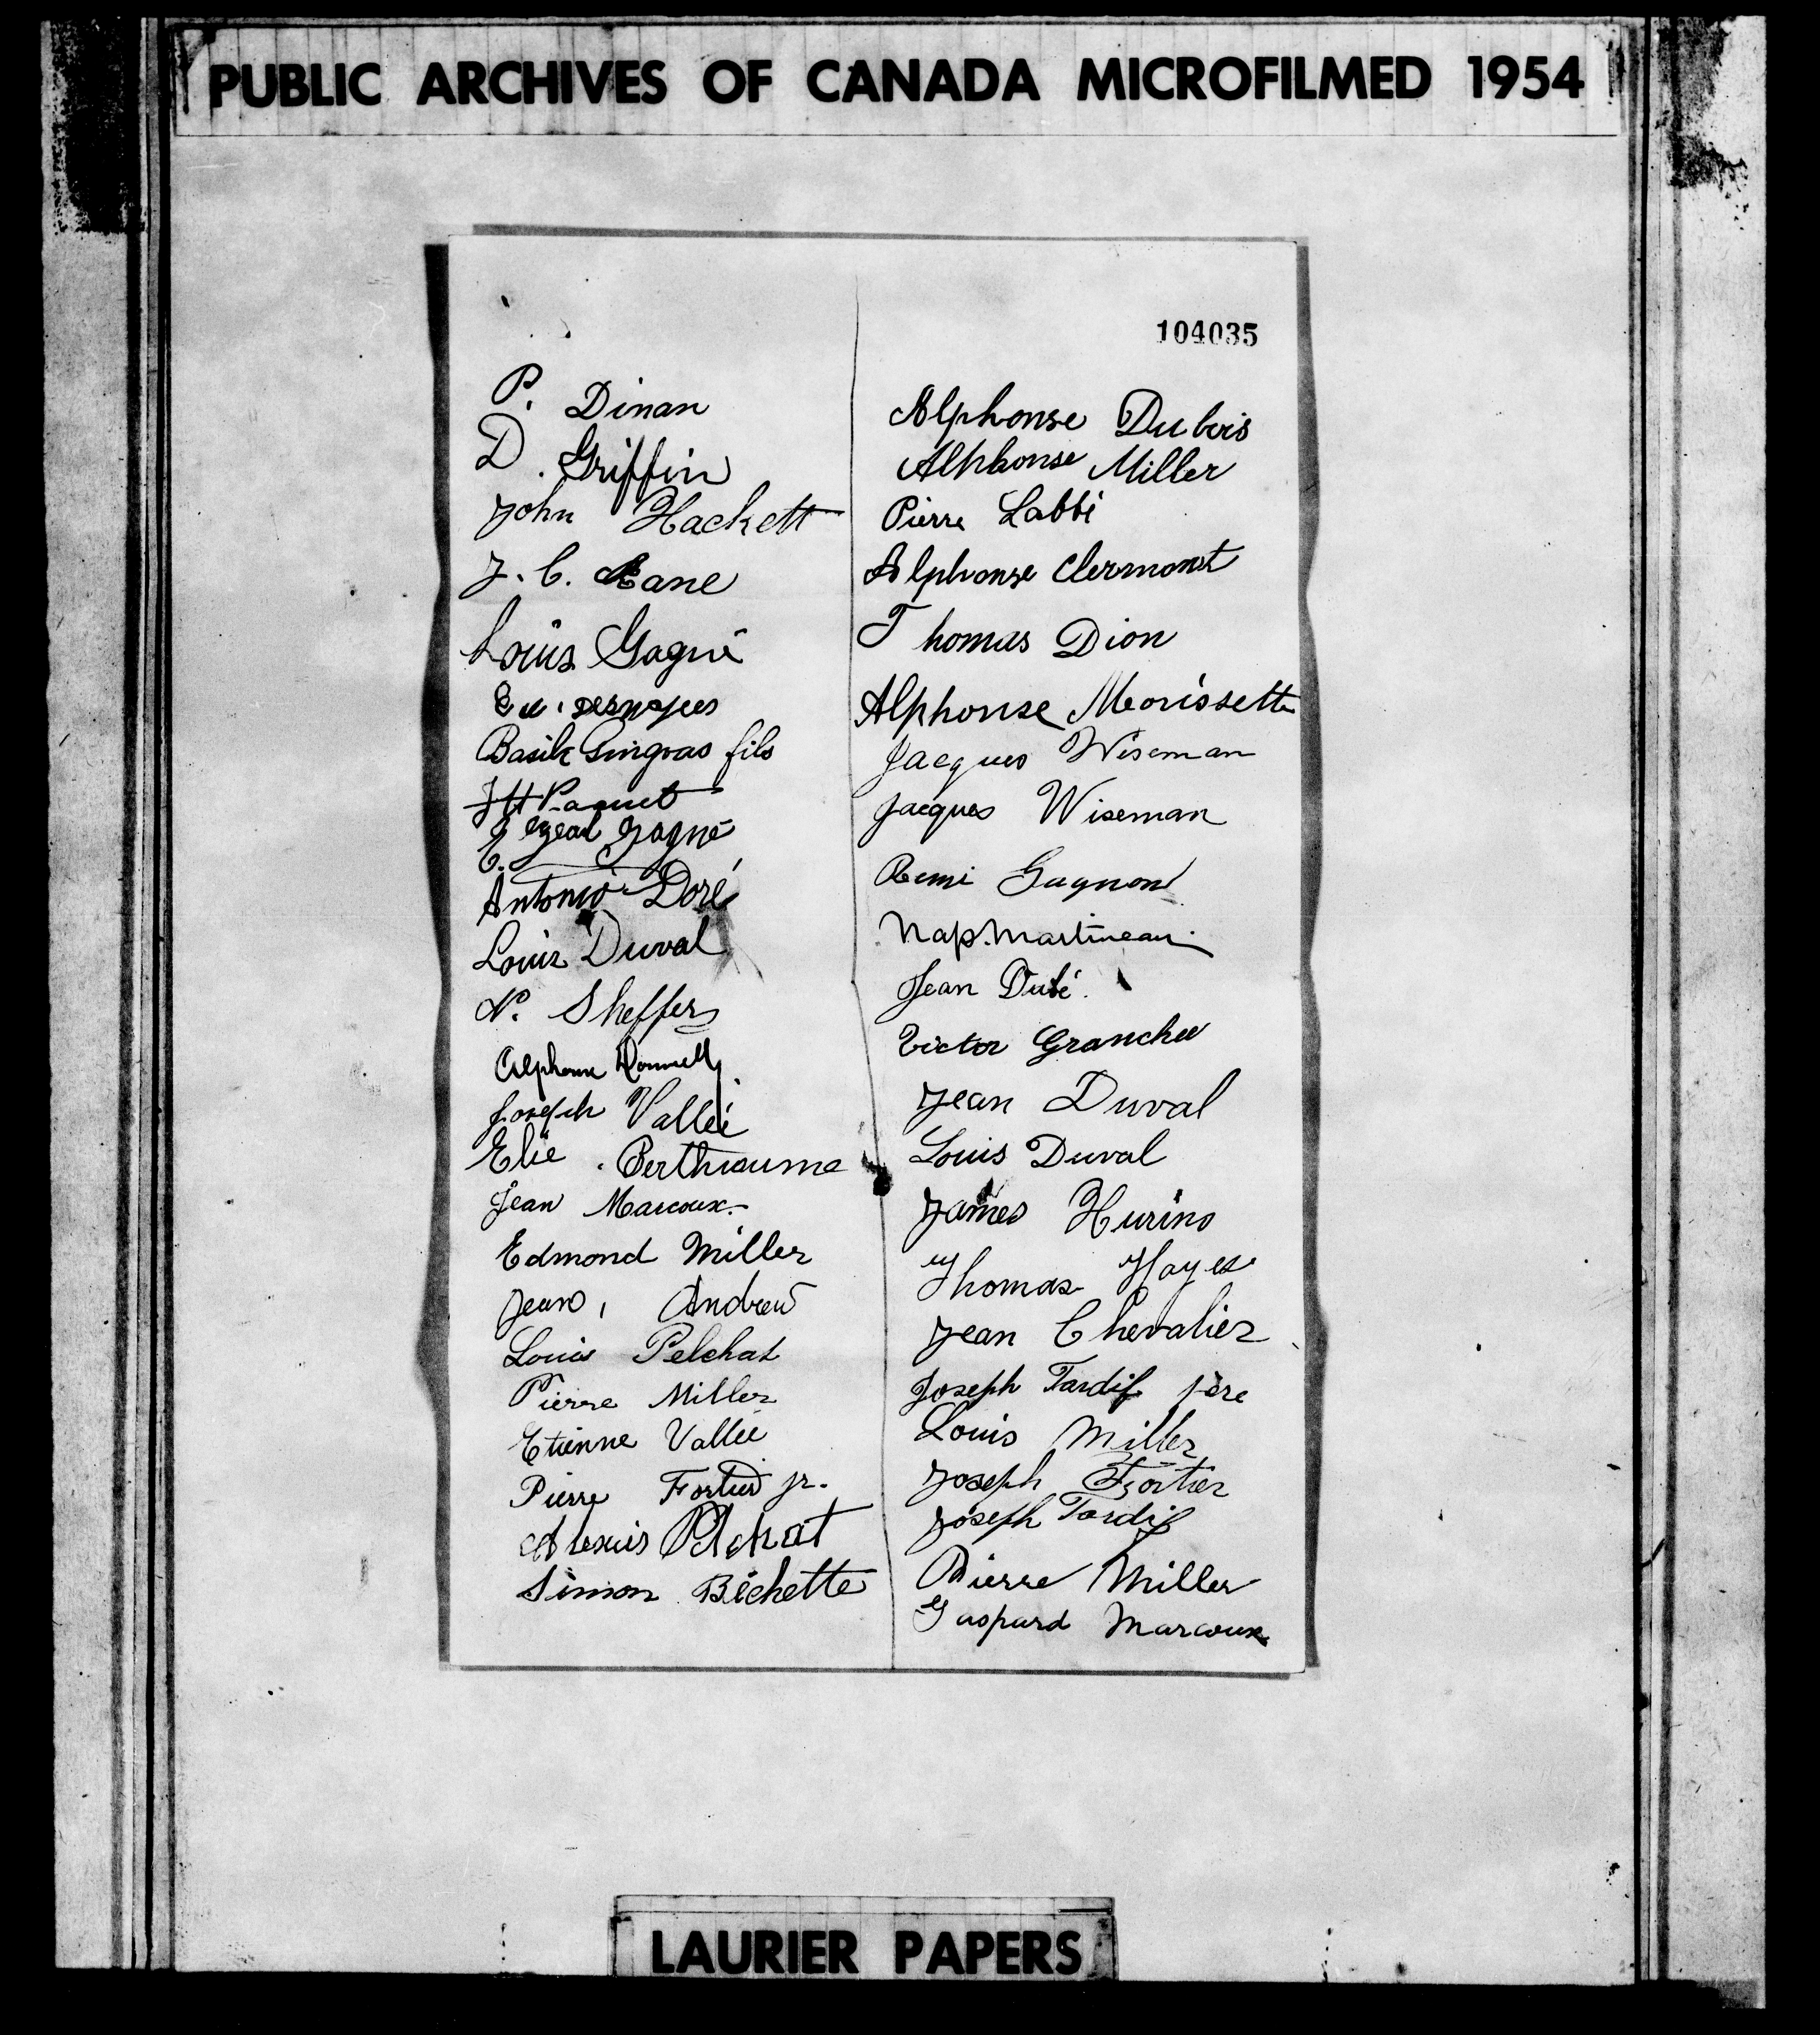 PUBLIC ARCHIVES OF CANADA MICROFILMED 1954
104035
P. Dinan
D. Griffin
John Hackett
J. C. Kane
Louis Gagné
Basile Gingras fils
J H Paquet
Elzear Gagné
Antonio Doré
Louis Duval
N. Sheffer
Alphonse Donnelly
Joseph Vallée
Elie Berthiaume
Jean Marcoux
Edmond Miller
Jean, Andrew
Louis Pelchat
Pierre Miller
Etienne Vallée
Pierre Fortier jr.
Alexis Pelchat
Simon Bechette
Alphonse Dubois
Alphonse Miller
Pierre Labbé
Alphonse Clermont
Thomas Dion
Alphonse Morissette
Jacques Wiseman
Jacques Wiseman
Remi Gagnon
Nap. Martineau
Jean Dubé.
Victor
Jean Duval
Louis Duval
James
Thomas Hayes
Jean Chevalier
Joseph Tardif père
Louis Miller
Joseph Fortier
Joseph Tardif
Pierre Miller
Gaspard Marcoux
LAURIER PAPERS